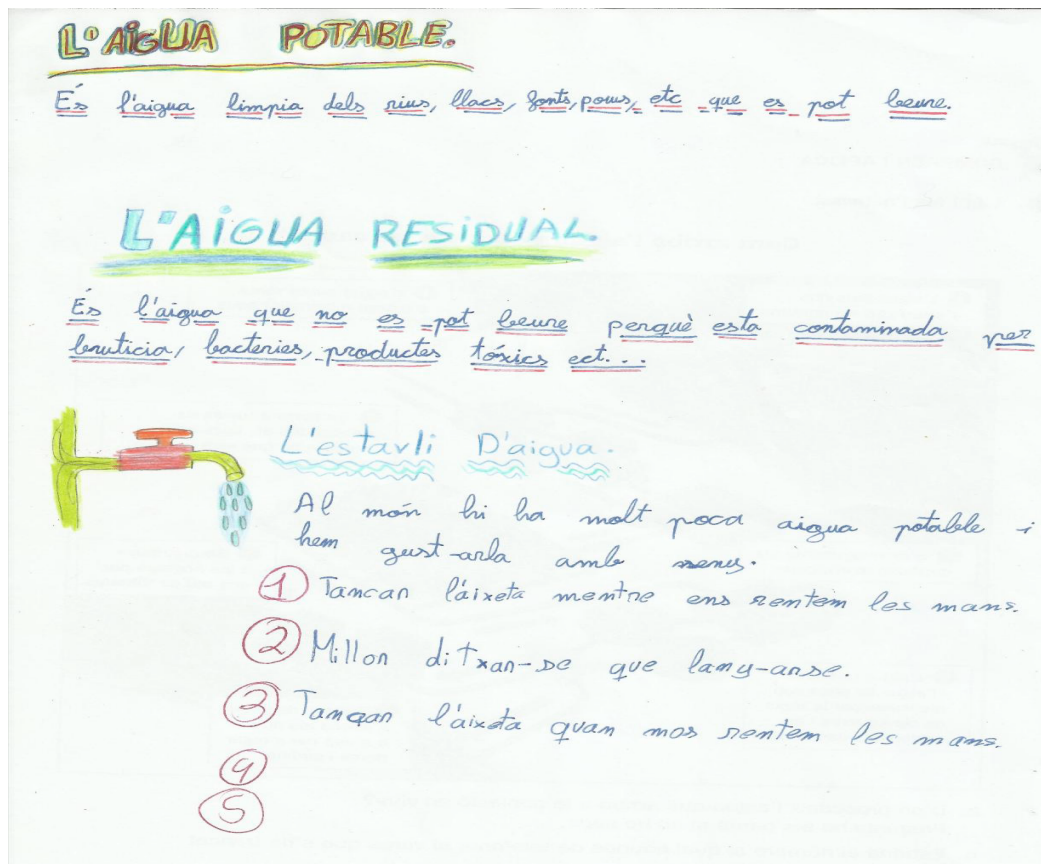 L'AIGUA POTABLE.
És l'aigua limpia dels rius, llacs, fonts, pous, etc que es pot beure.
L'AIGUA RESIDUAL.
És l'aigua que no es pot beure perquè esta contaminada per
bruticia, bacteries, productes tóxics ect...
L'estavli D'aigua.
Al món hi ha molt poca aigua potable i
hem gust-arla amb menys.
1 Tancar l'áixeta mentre ens rentem les mans.
2 Millor ditxar-se que bany-arse.
3 Tancar l'áixeta quan mos rentem les mans.
4
5